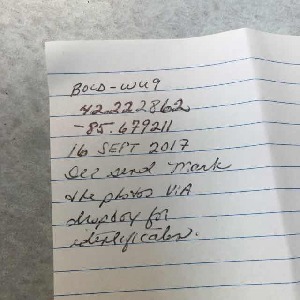 BOLD-WU9
42.222862
-85.679211
16 SEPT 2017
send Mark
the photos VIA
dropbox for